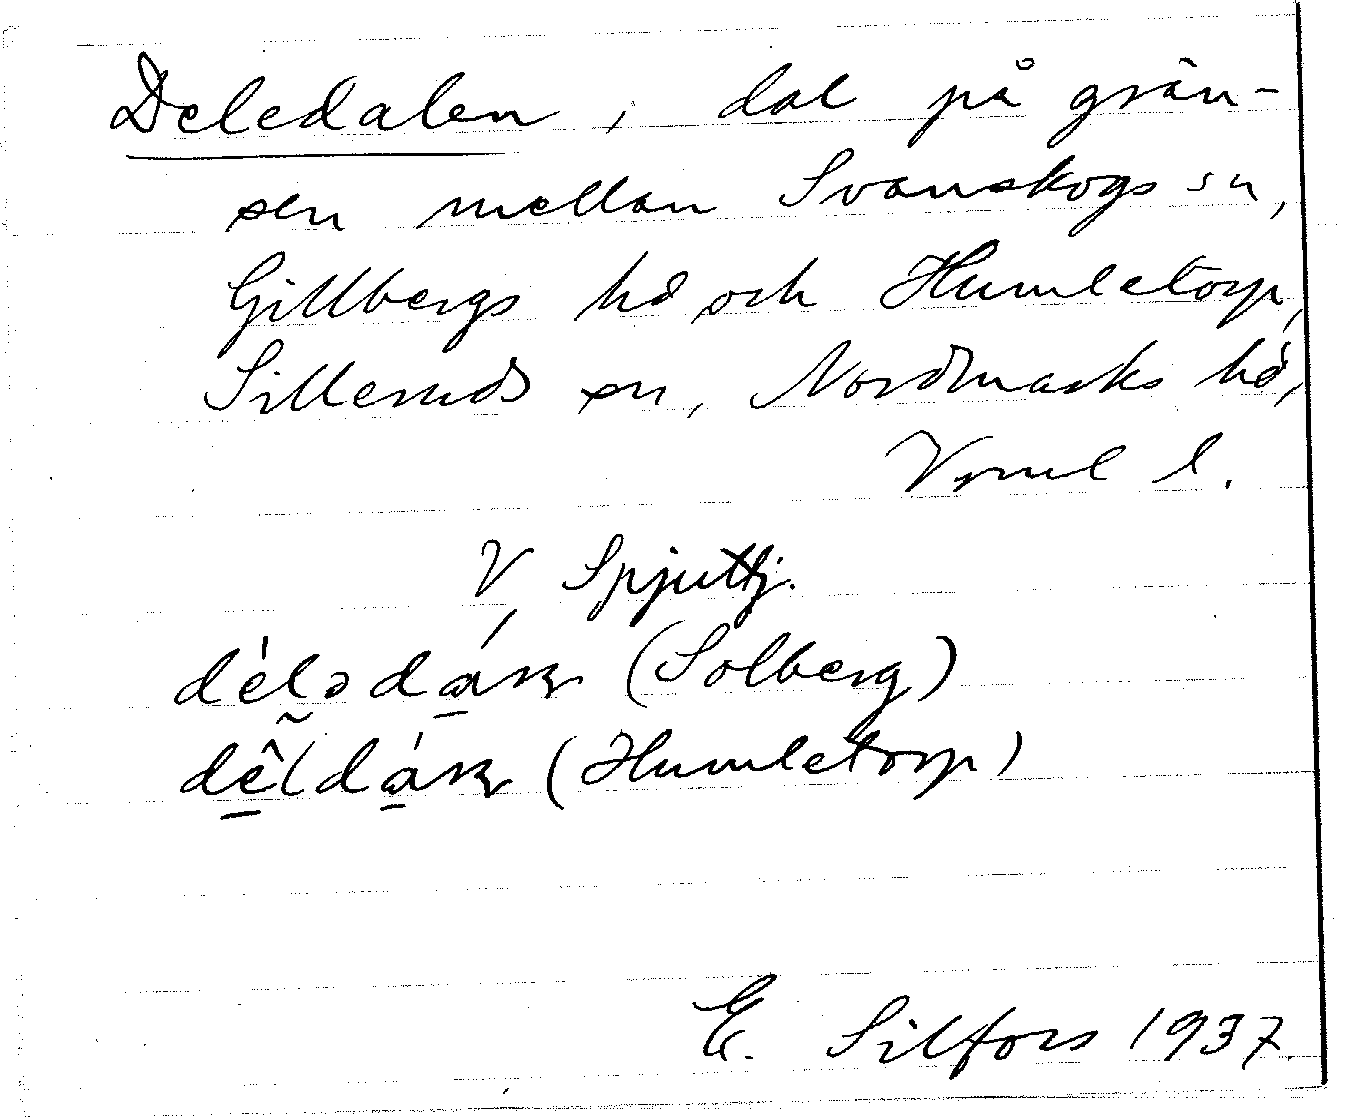 Deledalen, dal på grän-
sen mellan Svanskogs sn,
Gillbergs hd och Humletorp,
Silleruds sn, Nordmarks hd,
Vrml l.
V Spjuttj.
(Solberg)
(Humletorp)
E. Silfors 1937